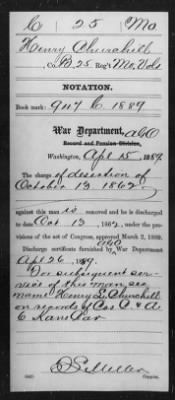 C 25 Mo
Henry Churchill
Co. B, 25 Reg't Mo. Vols
NOTATION.
Book mark: 9117 C 1889
War Department, AGO
Record and Pension Division,
Washington, Apl 15, 1889.
The charge of desertion of
October 13, 1862.
against this man is removed and he is discharged
to date Oct 13, 1862, under the pro-
visions of the act of Congress, approved March 2, 1889.
Discharge certificate furnished by AGO War Department
Apl 26, 1889.
For subsequent ser-
vice of this man, see
name Henry L. Churchill
on records of Cos. C. & A.
6 Kans Cav
Copyist.